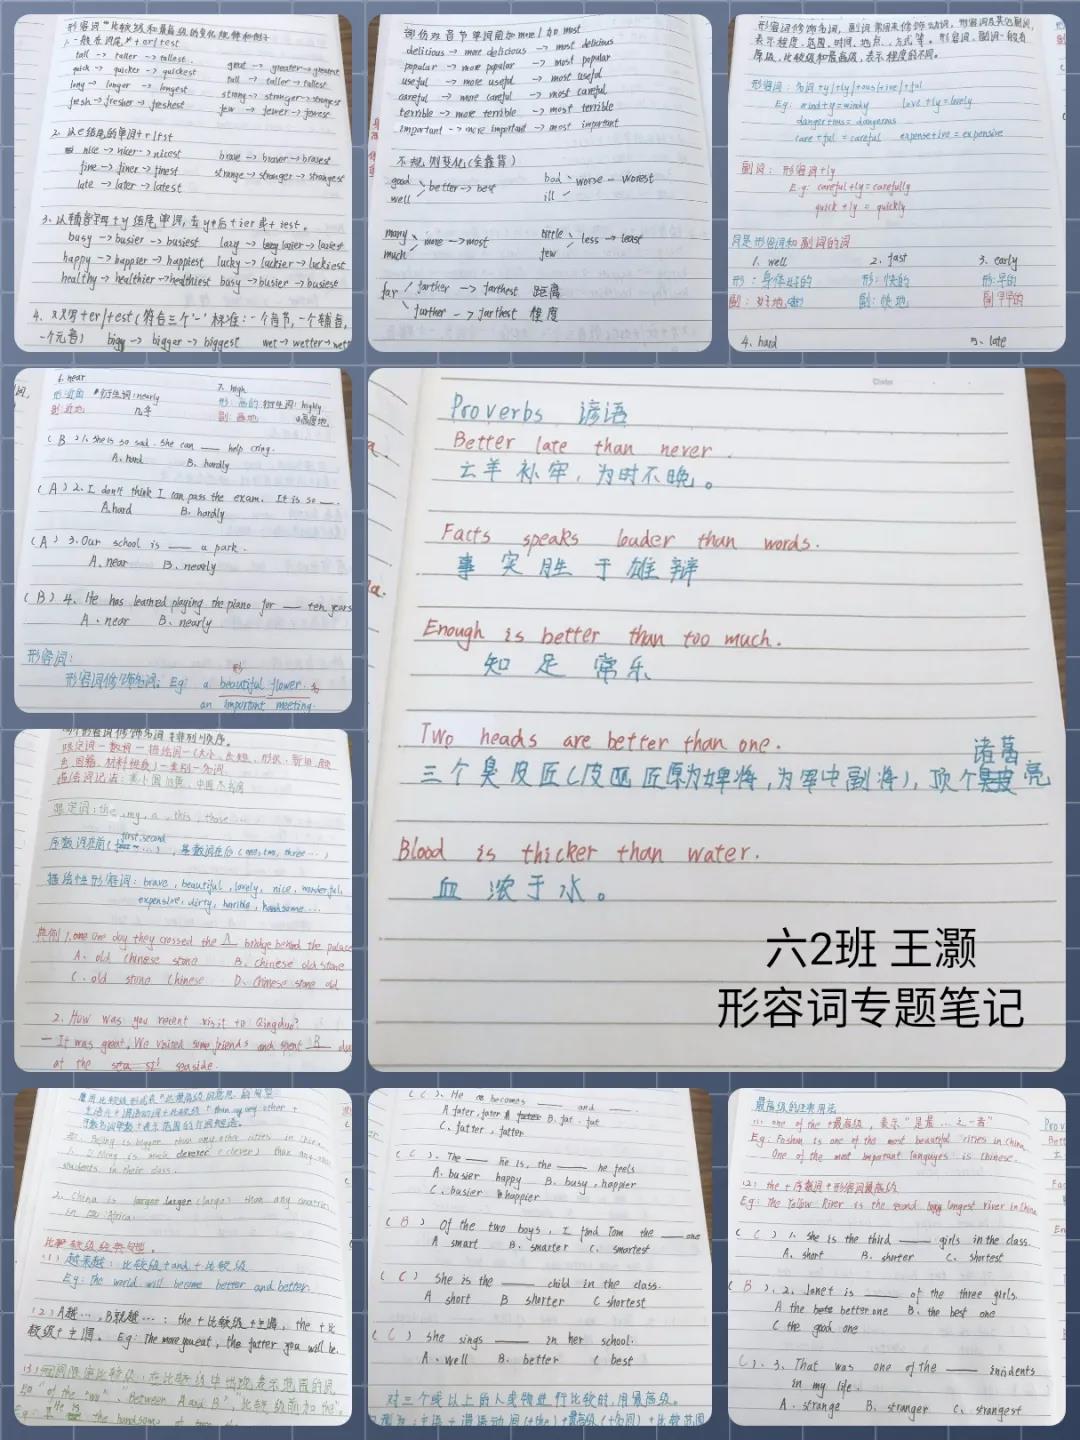 形容词"比较级和最高级的变化规律和例子
1.一般在词尾+er/est
tall -> taller -> tallest.
great -> greater -> greatest
quick -> quicker -> quickest
tall -> taller -> tallest
long -> longer -> longest
strong -> stronger -> strongest
fresh -> fresher -> freshest
few -> fewer -> fewest
2. 以e结尾的单词+r/st
nice -> nicer -> nicest
brave -> braver -> bravest
fine -> finer -> finest
strange -> stranger -> strangest
late -> later -> latest
3. 以辅音字母+y结尾单词,去y+后+ier或+iest。
busy -> busier -> busiest lazy -> lazier -> laziest
happy -> happier -> happiest lucky -> luckier -> luckiest
healthy -> healthier -> healthiest busy -> busier -> busiest
4. 双写+er/est(符合三个"一"标准:一个音节,一个辅音,
一个元音) bigger -> biggest wet -> wetter
部份双音节单词前加more/加most
delicious -> more delicious -> most delicious
popular -> more popular -> most popular
useful -> more useful -> most useful
careful -> more careful -> most careful
terrible -> more terrible -> most terrible
important -> more important -> most important
不规则变化(全靠背)
good
well
better -> best
bad
ill
worse - worest
many
much
more -> most
little
few
less -> least
far
farther -> farthest 距离
further -> farthest 程度
形容词修饰名词,副词常用来修饰动词,形容词及其它副词,
表示程度,范围,时间,地点,方式等。形容词,副词一般有
原级,比较级和最高级,表示程度的不同。
形容词:名词+y/ly/+ous/ive/+ful
Eg: wind+y=windy love+ly=lovely
danger+ous=dangerous
care+ful=careful expense+ive=expensive
副词:形容词+ly
E.g: careful+ly=carefully
quick+ly=quickly
同是形容词和副词的词
1. well 2. fast 3. early
形:身体好的 形:快的 形:早的
副:好地 副:快地 副:早早的
4. hard 5. late
6. near 7. high
形:近的 #衍生词:nearly 形:高的 衍生词:highly
副:近地 几乎 副:高地 高度地
(B)1. She is so sad. She can ___ help cring.
A. hard B. hardly
(A)2. I don't think I can pass the exam. It is so ___.
A. hard B. hardly
(A)3. Our school is ___ a park.
A. near B. nearly
(B)4. He has learned playing the piano for ___ ten years
A. near B. nearly
形容词:
形
形容词修饰名词: Eg: a beautiful flower. 名
an important meeting.
Proverbs 谚语
Better late than never.
亡羊补牢,为时不晚。
Facts speaks louder than words.
事实胜于雄辩
Enough is better than too much.
知足常乐
Two heads are better than one.
诸葛
三个臭皮匠(皮匠原为婢将,为军中副将),顶个亮
Blood is thicker than water.
血浓于水。
六2班 王灏
形容词专题笔记
限定词:the, my, a, this, those...
first, second
序数词在前(...),基数词在后(one, two, three...)
描绘性形容词:brave, beautiful, lovely, nice, wonderful,
expensive, dirty, horible, handsome...
典例1. one day they crossed the A bridge behind the palace
A. old Chinese stone B. Chinese old stone
C. old stone Chinese D. Chinese stone old
2. How was you recent visit to Qingdao?
— It was great. We visited some friends and spent B
at the seaside.
比较级经典句型。
(1)越来越:比较级+and+比较级
Eg: The world will become better and better.
(2)A越...,B就越...:the+比较级+主谓, the+比
较级+主谓。Eg: The more you eat, the fatter you will be.
(C). He becomes ___ and ___.
C. fatter, fatter
(C). The ___ he is, the ___ he feels
A. busier happy B. busy, happier
C. busier happier
(B) Of the two boys, I find Tom the ___ one
A smart B. smarter C. smartest
(C) She is the ___ child in the class.
A short B shorter C shortest
(C) She sings ___ in her school.
A. well B. better C best
对三个或以上的人或物进行比较时,用最高级。
最高级的经典用法
(1). one of the +最高级,表示"是最...之一者"
Eg: Foshan is one of the most beautiful cities in China.
One of the most important languages is Chinese.
(2) the+序数词+形容词最高级
Eg: The Yellow River is the second longest river in China
(C) 1. She is the third ___ girls in the class.
A. short B. shorter C. shortest
(B). 2. Janet is ___ of the three girls.
A the better one B. the best one
C the good one
(C). 3. That was one of the ___ inidents
in my life.
A. strange B. stranger C. strangest